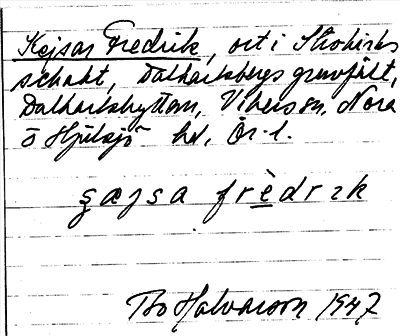 Kejsar Fredrik, ort i Stohirks
schakt, Dalkarlsbergs gruvfält,
Dalkarlshyttan, Vikers sn, Nora
o Hjulsjö hd, Ör. l.
ȿæjsa frèdrɪk
Bo Halvarson 1947